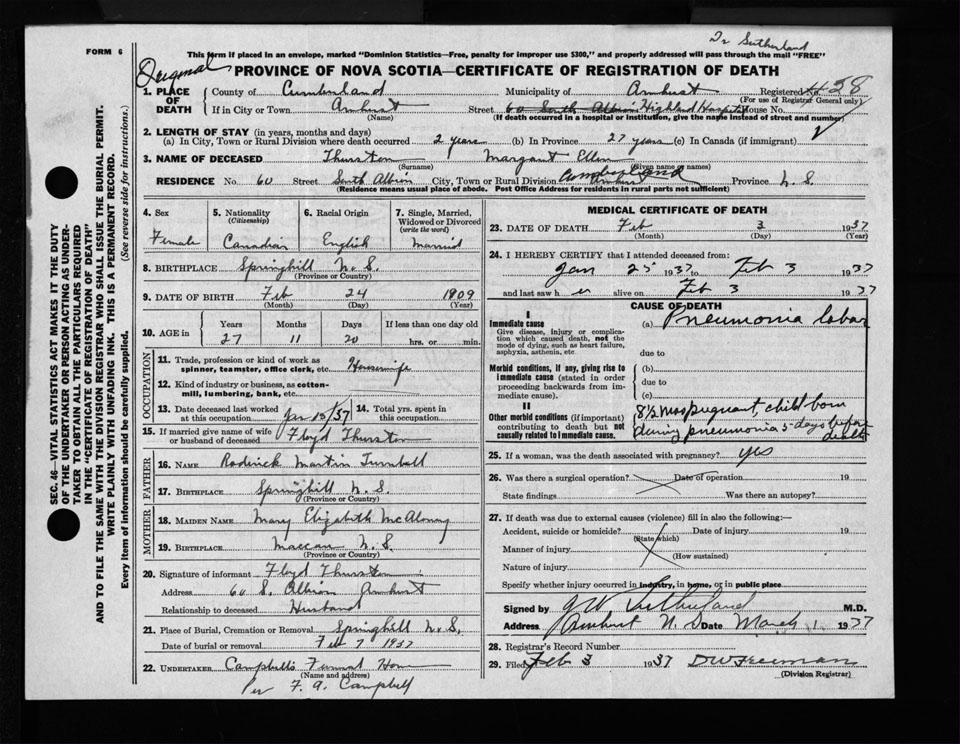 Dr Sutherland
FORM 6
This form if placed in an envelope, marked "Dominion Statistics—Free, penalty for improper use $300," and properly addressed will pass through the mail "FREE"
Original
PROVINCE OF NOVA SCOTIA—CERTIFICATE OF REGISTRATION OF DEATH
1. PLACE OF DEATH
County of Cumberland Municipality of Amherst Registered No. 438
(For use of Registrar General only)
If in City or Town Amherst Street 60 South Albion Highland Hospital House No.
(Name) (If death occurred in a hospital or institution, give the name instead of street and number)
2. LENGTH OF STAY (in years, months and days)
(a) In City, Town or Rural Division where death occurred 2 years (b) In Province 27 years (c) In Canada (if immigrant)
3. NAME OF DECEASED Thurston Margaret Ellen
(Surname) (Given name or names)
RESIDENCE No. 60 Street South Albion City, Town or Rural Division Cumberland Amherst Province N. S.
(Residence means usual place of abode. Post Office Address for residents in rural parts not sufficient)
4. Sex
Female
5. Nationality
(Citizenship)
Canadian
6. Racial Origin
English
7. Single, Married, Widowed or Divorced
(write the word)
Married
8. BIRTHPLACE Springhill N. S.
(Province or Country)
9. DATE OF BIRTH Feb 24 1909
(Month) (Day) (Year)
10. AGE in
Years Months Days If less than one day old
27 11 20 hrs. or min.
OCCUPATION
11. Trade, profession or kind of work as
spinner, teamster, office clerk, etc. Housewife
12. Kind of industry or business, as cotton-
mill, lumbering, bank, etc.
13. Date deceased last worked
at this occupation Jan 15/37
14. Total yrs. spent in
this occupation
15. If married give name of wife
or husband of deceased Floyd Thurston
FATHER
16. NAME Roderick Martin Turnbull
17. BIRTHPLACE Springhill N. S.
(Province or Country)
MOTHER
18. MAIDEN NAME Mary Elizabeth McAloney
19. BIRTHPLACE Maccan N. S.
(Province or Country)
20. Signature of informant Floyd Thurston
Address 60 S. Albion Amherst
Relationship to deceased Husband
21. Place of Burial, Cremation or Removal Springhill N. S.
Date of burial or removal Feb 7 1937
22. UNDERTAKER Campbell's Funeral Home
(Name and address)
Per F. A. Campbell
MEDICAL CERTIFICATE OF DEATH
23. DATE OF DEATH Feb 3 1937
(Month) (Day) (Year)
24. I HEREBY CERTIFY that I attended deceased from:
Jan 25 1937 to Feb 3 1937
and last saw her alive on Feb 3 1937
CAUSE OF DEATH
I
Immediate cause (a) Pneumonia lobar
Give disease, injury or complica-
tion which caused death, not the
mode of dying, such as heart failure,
asphyxia, asthenia, etc
due to
Morbid conditions, if any, giving rise to
immediate cause (stated in order
proceeding backwards from im-
mediate cause).
(b)
due to
(c)
II
Other morbid conditions (if important)
contributing to death but not
causally related to immediate cause.
8½ mos pregnant, child born
during pneumonia 5 days before
death
25. If a woman, was the death associated with pregnancy? yes
26. Was there a surgical operation? Date of operation 19
State findings Was there an autopsy?
27. If death was due to external causes (violence) fill in also the following:—
Accident, suicide or homicide? Date of injury 19
(State which)
Manner of injury
(How sustained)
Nature of injury
Specify whether injury occurred in industry, in home, or in public place
Signed by J W Sutherland M.D.
Address Amherst N. S Date March 1 1937
28. Registrar's Record Number
29. Filed Feb 3 1937 DW Freeman
(Division Registrar)
SEC. 46—VITAL STATISTICS ACT MAKES IT THE DUTY
OF THE UNDERTAKER OR PERSON ACTING AS UNDER-
TAKER TO OBTAIN ALL THE PARTICULARS REQUIRED
IN THE "CERTIFICATE OF REGISTRATION OF DEATH"
AND TO FILE THE SAME WITH THE DIVISION REGISTRAR WHO SHALL ISSUE THE BURIAL PERMIT.
WRITE PLAINLY WITH UNFADING INK. THIS IS A PERMANENT RECORD.
Every item of information should be carefully supplied. (See reverse side for instructions.)